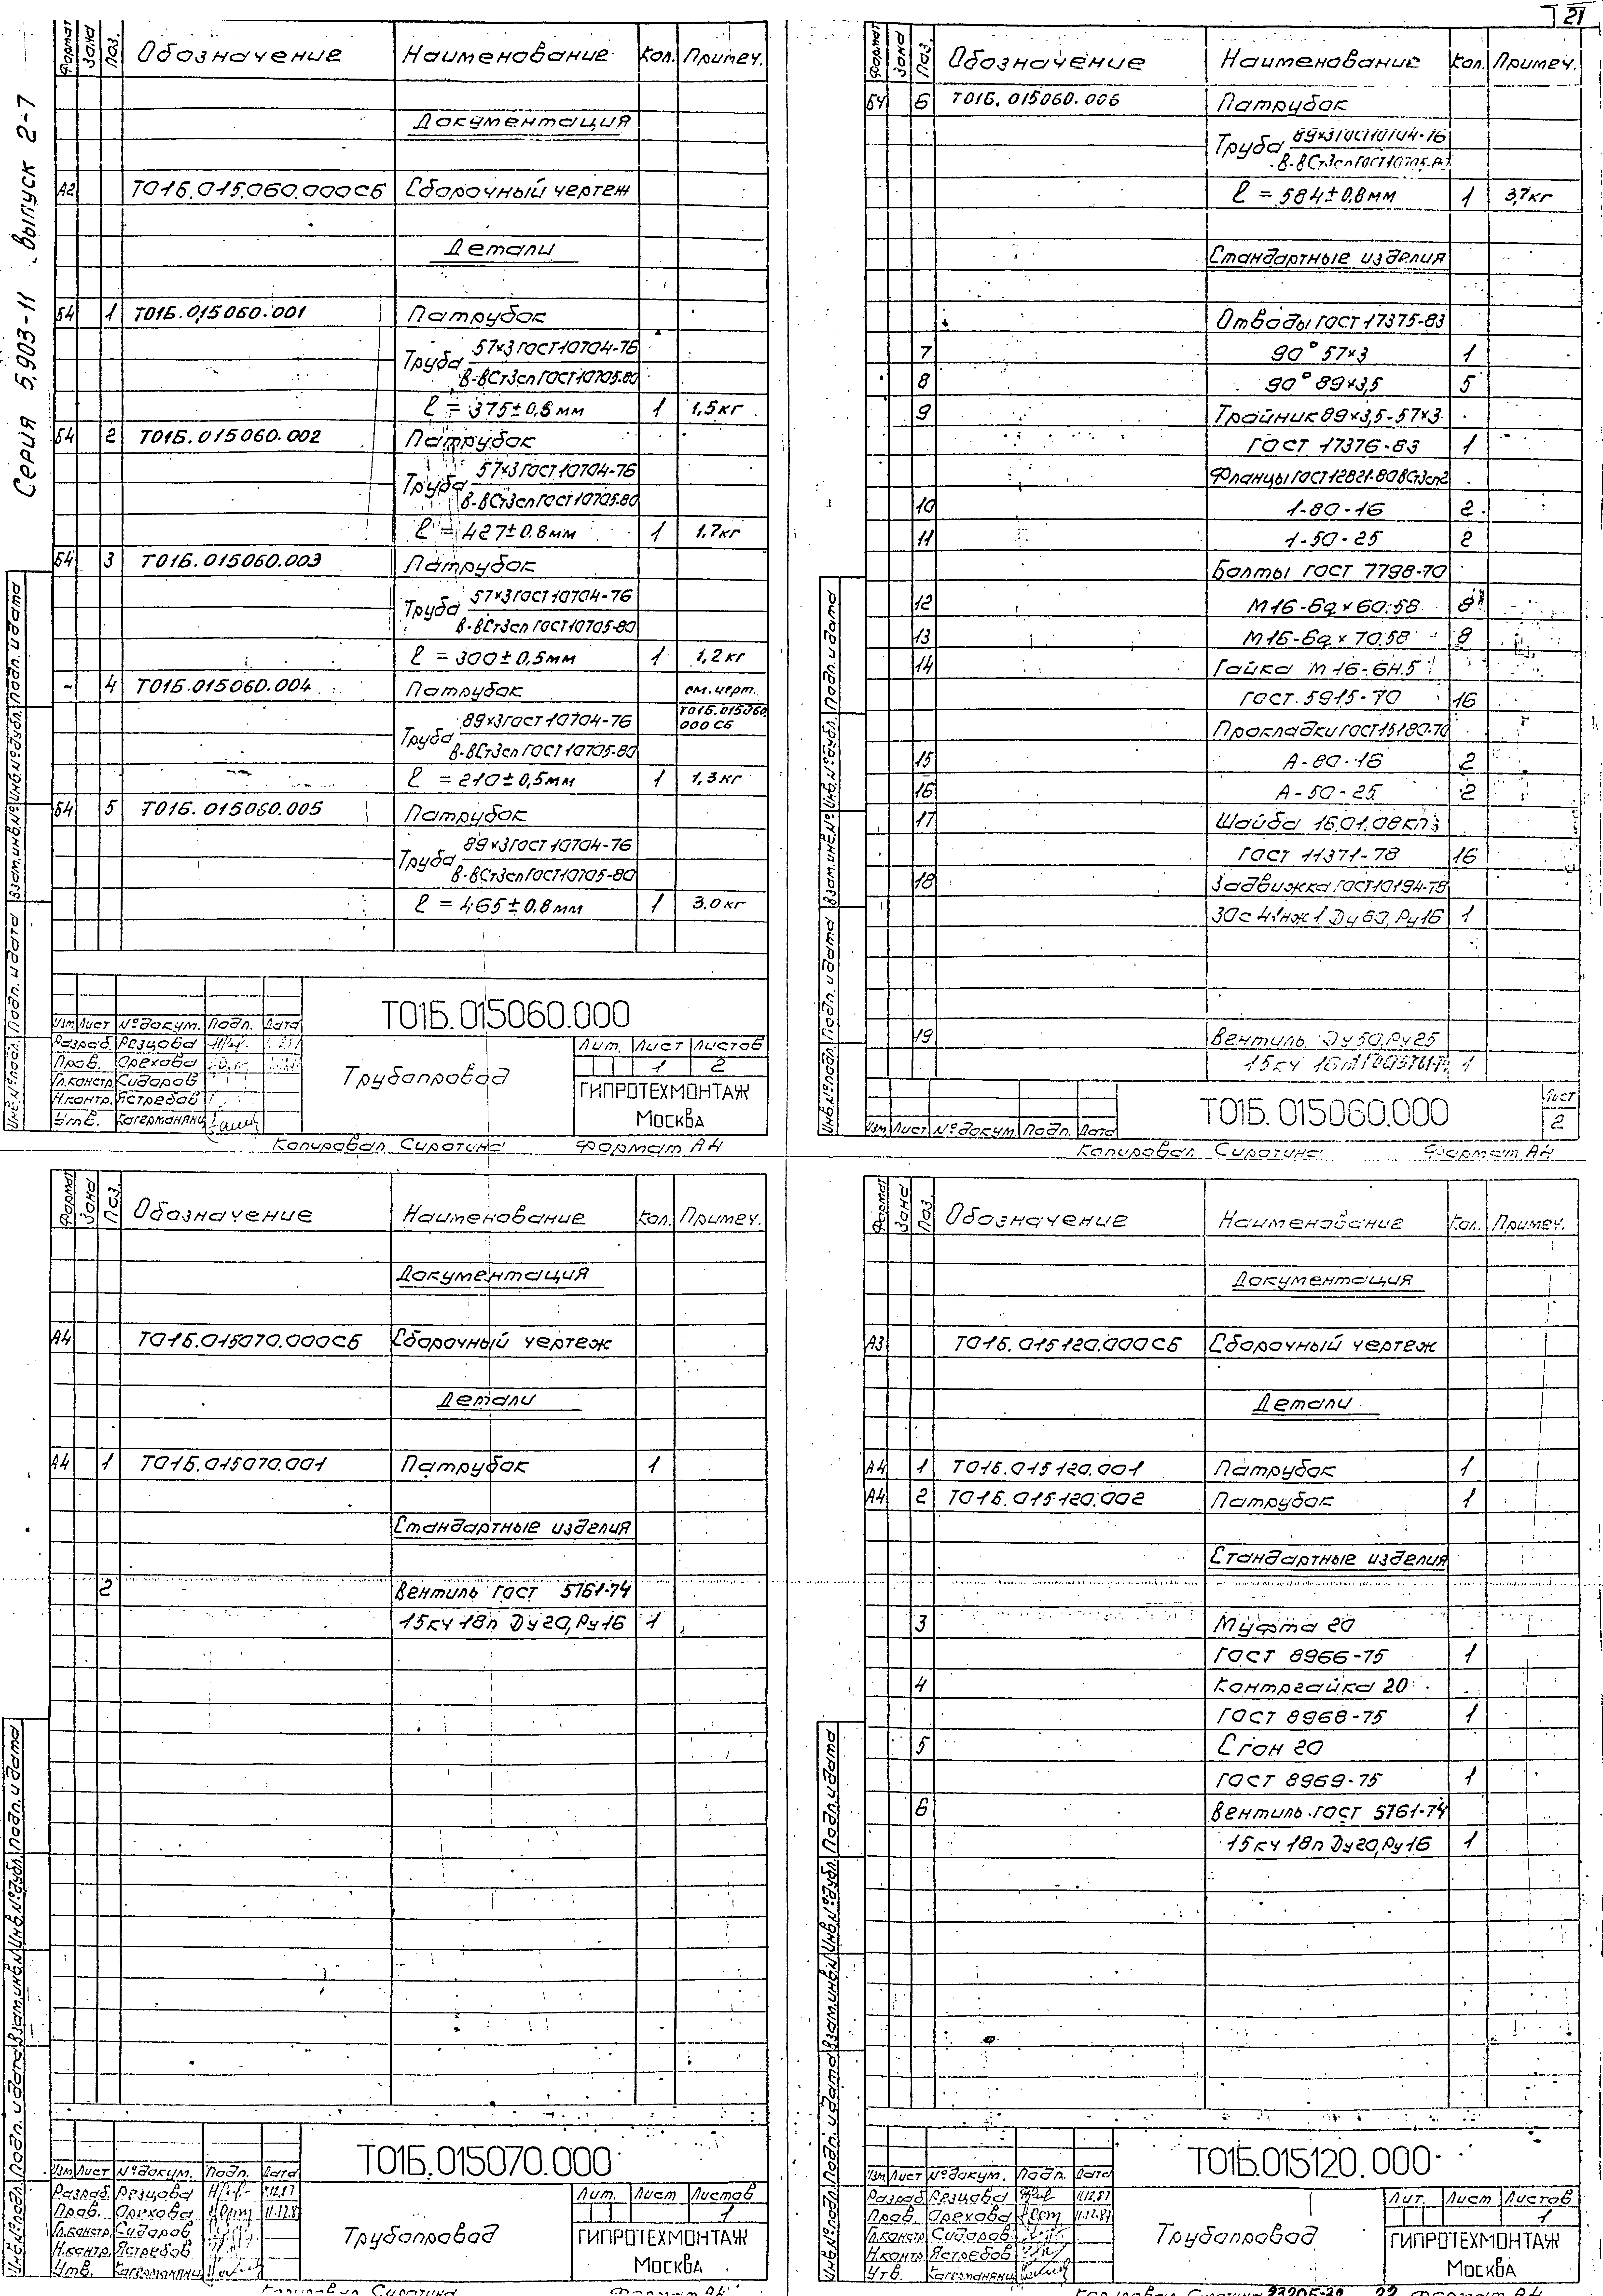 21
Серия 5.903-11 Выпуск 2-7
Формат Зона Поз. Обозначение Наименование Кол. Примеч.
Документация
А2 Т01Б.015060.000СБ Сборочный чертеж
Детали
Б4 1 Т01Б.015060.001 Патрубок
Труба 57×3 ГОСТ 10704-76
В-ВСт3сп ГОСТ 10705-80
ℓ = 375±0,8мм 1 1,5кг
Б4 2 Т01Б.015060.002 Патрубок
Труба 57×3 ГОСТ 10704-76
В-ВСт3сп ГОСТ 10705-80
ℓ = 427±0.8мм 1 1,7кг
Б4 3 Т01Б.015060.003 Патрубок
Труба 57×3 ГОСТ 10704-76
В-ВСт3сп ГОСТ 10705-80
ℓ = 300±0,5мм 1 1,2кг
- 4 Т01Б.015060.004 Патрубок см.черт.
Труба 89×3 ГОСТ 10704-76 Т01Б.015060.
000 СБ
В-ВСт3сп ГОСТ 10705-80
ℓ = 210±0,5мм 1 1,3кг
Б4 5 Т01Б.015060.005 Патрубок
Труба 89×3 ГОСТ 10704-76
В-ВСт3сп ГОСТ 10705-80
ℓ = 465±0.8мм 1 3.0кг
Инв.№подл. Подп. и дата Взам.инв.№ Инв.№дубл. Подп. и дата
Т01Б.015060.000
Изм Лист №докум. Подп. Дата
Разраб. Резцова
Пров. Орехова
Гл.констр. Сидоров
Н.контр. Ястребов
Утв. Кагерманянц
Трубопровод
Лит. Лист Листов
1 2
ГИПРОТЕХМОНТАЖ
Москва
Копировал Сиротина Формат А4
Формат Зона Поз. Обозначение Наименование Кол. Примеч.
Б4 6 Т01Б.015060.006 Патрубок
Труба 89×3 ГОСТ 10704-76
В-ВСт3сп ГОСТ 10705-
ℓ = 584±0,8мм 1 3,7кг
Стандартные изделия
Отводы ГОСТ 17375-83
7 90° 57×3 1
8 90° 89×3,5 5
9 Тройник 89×3,5-57×3
ГОСТ 17376-83 1
Фланцы ГОСТ 12821-80 ВСт3сп2
10 1-80-16 2
11 1-50-25 2
Болты ГОСТ 7798-70
12 М16-6g×60.58 8
13 М16-6g×70.58 8
14 Гайка М16-6Н.5
ГОСТ 5915-70 16
Прокладки ГОСТ 15180-70
15 А-80-16 2
16 А-50-25 2
17 Шайба 16.01.08кп
ГОСТ 11371-78 16
18 Задвижка ГОСТ 10194-78
30с 41нж1 Ду 80, Ру16 1
19 Вентиль Ду50,Ру25
15кч 16п 1
Инв.№подл. Подп. и дата Взам.инв.№ Инв.№дубл. Подп. и дата
Изм Лист №докум. Подп. Дата
Т01Б.015060.000
Лист
2
Копировал Сиротина Формат А4
Формат Зона Поз. Обозначение Наименование Кол. Примеч.
Документация
А4 Т01Б.015070.000СБ Сборочный чертеж
Детали
А4 1 Т01Б.015070.001 Патрубок 1
Стандартные изделия
2 Вентиль ГОСТ 5761-74
15кч 18п Ду20,Ру16 1
Инв.№подл. Подп. и дата Взам.инв.№ Инв.№дубл. Подп. и дата
Т01Б.015070.000
Изм Лист №докум. Подп. Дата
Разраб. Резцова 11.12.87
Пров. Орехова 11.12.87
Гл.констр. Сидоров
Н.контр. Ястребов
Утв. Кагерманянц
Трубопровод
Лит. Лист Листов
1
ГИПРОТЕХМОНТАЖ
Москва
Копировал Сиротина Формат А4
Формат Зона Поз. Обозначение Наименование Кол. Примеч.
Документация
А3 Т01Б.015120.000СБ Сборочный чертеж
Детали
А4 1 Т01Б.015120.001 Патрубок 1
А4 2 Т01Б.015120.002 Патрубок 1
Стандартные изделия
3 Муфта 20
ГОСТ 8966-75 1
4 Контргайка 20
ГОСТ 8968-75 1
5 Сгон 20
ГОСТ 8969-75 1
6 Вентиль ГОСТ 5761-74
15кч 18п Ду20,Ру16 1
Инв.№подл. Подп. и дата Взам.инв.№ Инв.№дубл. Подп. и дата
Т01Б.015120.000
Изм Лист №докум. Подп. Дата
Разраб. Резцова 11.12.87
Пров. Орехова 11.12.87
Гл.констр. Сидоров
Н.контр. Ястребов
Утв. Кагерманянц
Трубопровод
Лит. Лист Листов
1
ГИПРОТЕХМОНТАЖ
Москва
Копировал Сиротина 23205-30 22 Формат А4